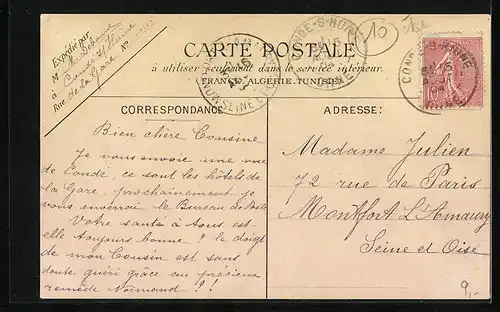 Expédié par
M
à Condé s/Huisne
Rue de la Gare N°
10
CARTE POSTALE
à utiliser seulement dans le service intérieur
(FRANCE, ALGERIE, TUNISIE)
CONDE-S-HUISNE
CONDE-S-HUISNE
CORRESPONDANCE
Bien chère Cousine
Je vous envoie une vue
de Condé, ce sont les hôtels de
la Gare, prochainement je
vous enverrai le Bureau de Poste
Votre santé à tous est-
elle toujours bonne? le doigt
de mon Cousin est sans
doute guéri grâce au précieux
remède Normand?
ADRESSE:
Madame Julien
72 rue de Paris
Montfort L'Amaury
Seine et Oise
9,-